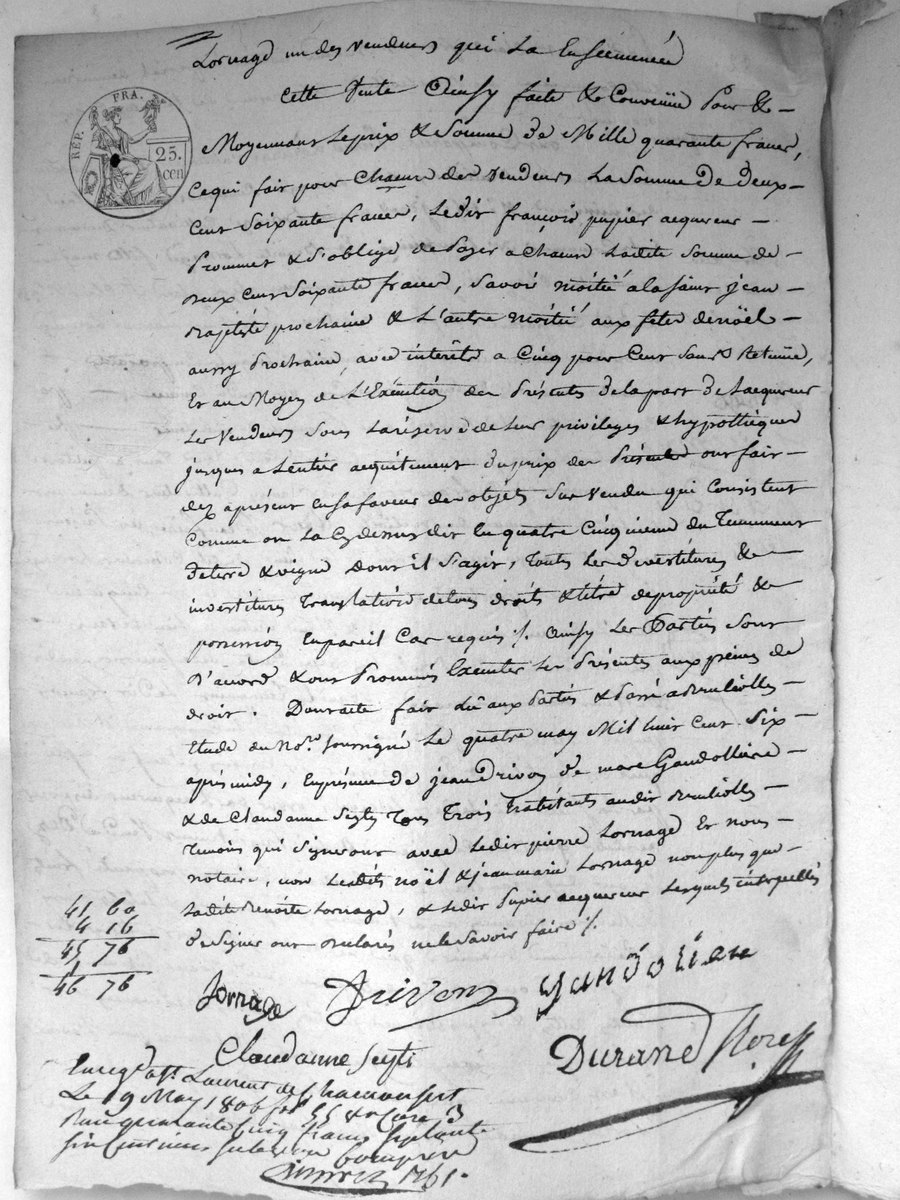 Lornage un des vendeurs qui la
Cette vente Ainsy faite & Convenüe Pour &
Moyennant le prix & Somme de Mille quarante francs,
REP. FRA.
25.
CEN
Ce qui fait pour Chacun des vendeurs La Somme de deux
Cent Soixante francs, Ledit françois pupier acqureur
Promet & S'oblige de Payer a Chacun Ladite Somme de
deux Cent Soixante francs, Savoir moitié a la Saint jean
Baptiste prochaine & L'autre moitié aux fêtes de noël
aussy Prochaine, avec interêts a Cinq pour Cent Sans Retenüe,
Et au Moyen de L'Exécution des Présentes de la part de Lacqureur
Les Vendeurs Sous La réserve de Leur privileges & hypothèques
jusques a Lentier acquitement du prix des Présentes ont fait
dez aprésent En sa faveur des objets Sus vendu qui Consistent
Comme on La Cy dessus dit Les quatre Cinquieme du Tennement
de terre & vigne Dont il S'agit, Toutes Les devestitures &
investitures Translation de tous droits & titre de propriété &
possession En pareil Cas requis %. Ainsy Les Parties Sont
D'accord & ont Promis Exécuter Les Présentes aux peines de
droit. Dont acte fait Lû aux Parties & Passé a
Etude du No.re Soussigné Le quatre may Mil huit Cent Six
après midy, En présence de jean Drivon de marc Gandolliere
& de Claudanne Seytz Tous Trois habitants audit
Temoins qui Signeront avec Ledit pierre Lornage Et nous
notaire, non Lesdits noël & jean marie Lornage non plus que
Ladite Benoite Lornage, & Ledit Pupier acqureur Lesquels interpellés
de Signer ont déclarés ne le Savoir faire %.
41 60
4 16
45 76
1
46 76
Lornage Drivon gandolien
Claudanne Seyti
Durand Nore
Enreg.é a St. Laurent de Chamousset
Le 9 May 1806 f.o 55 v.o Case 3
Reçu quarante Cinq francs Septante
Six Centimes Subvention Comprise